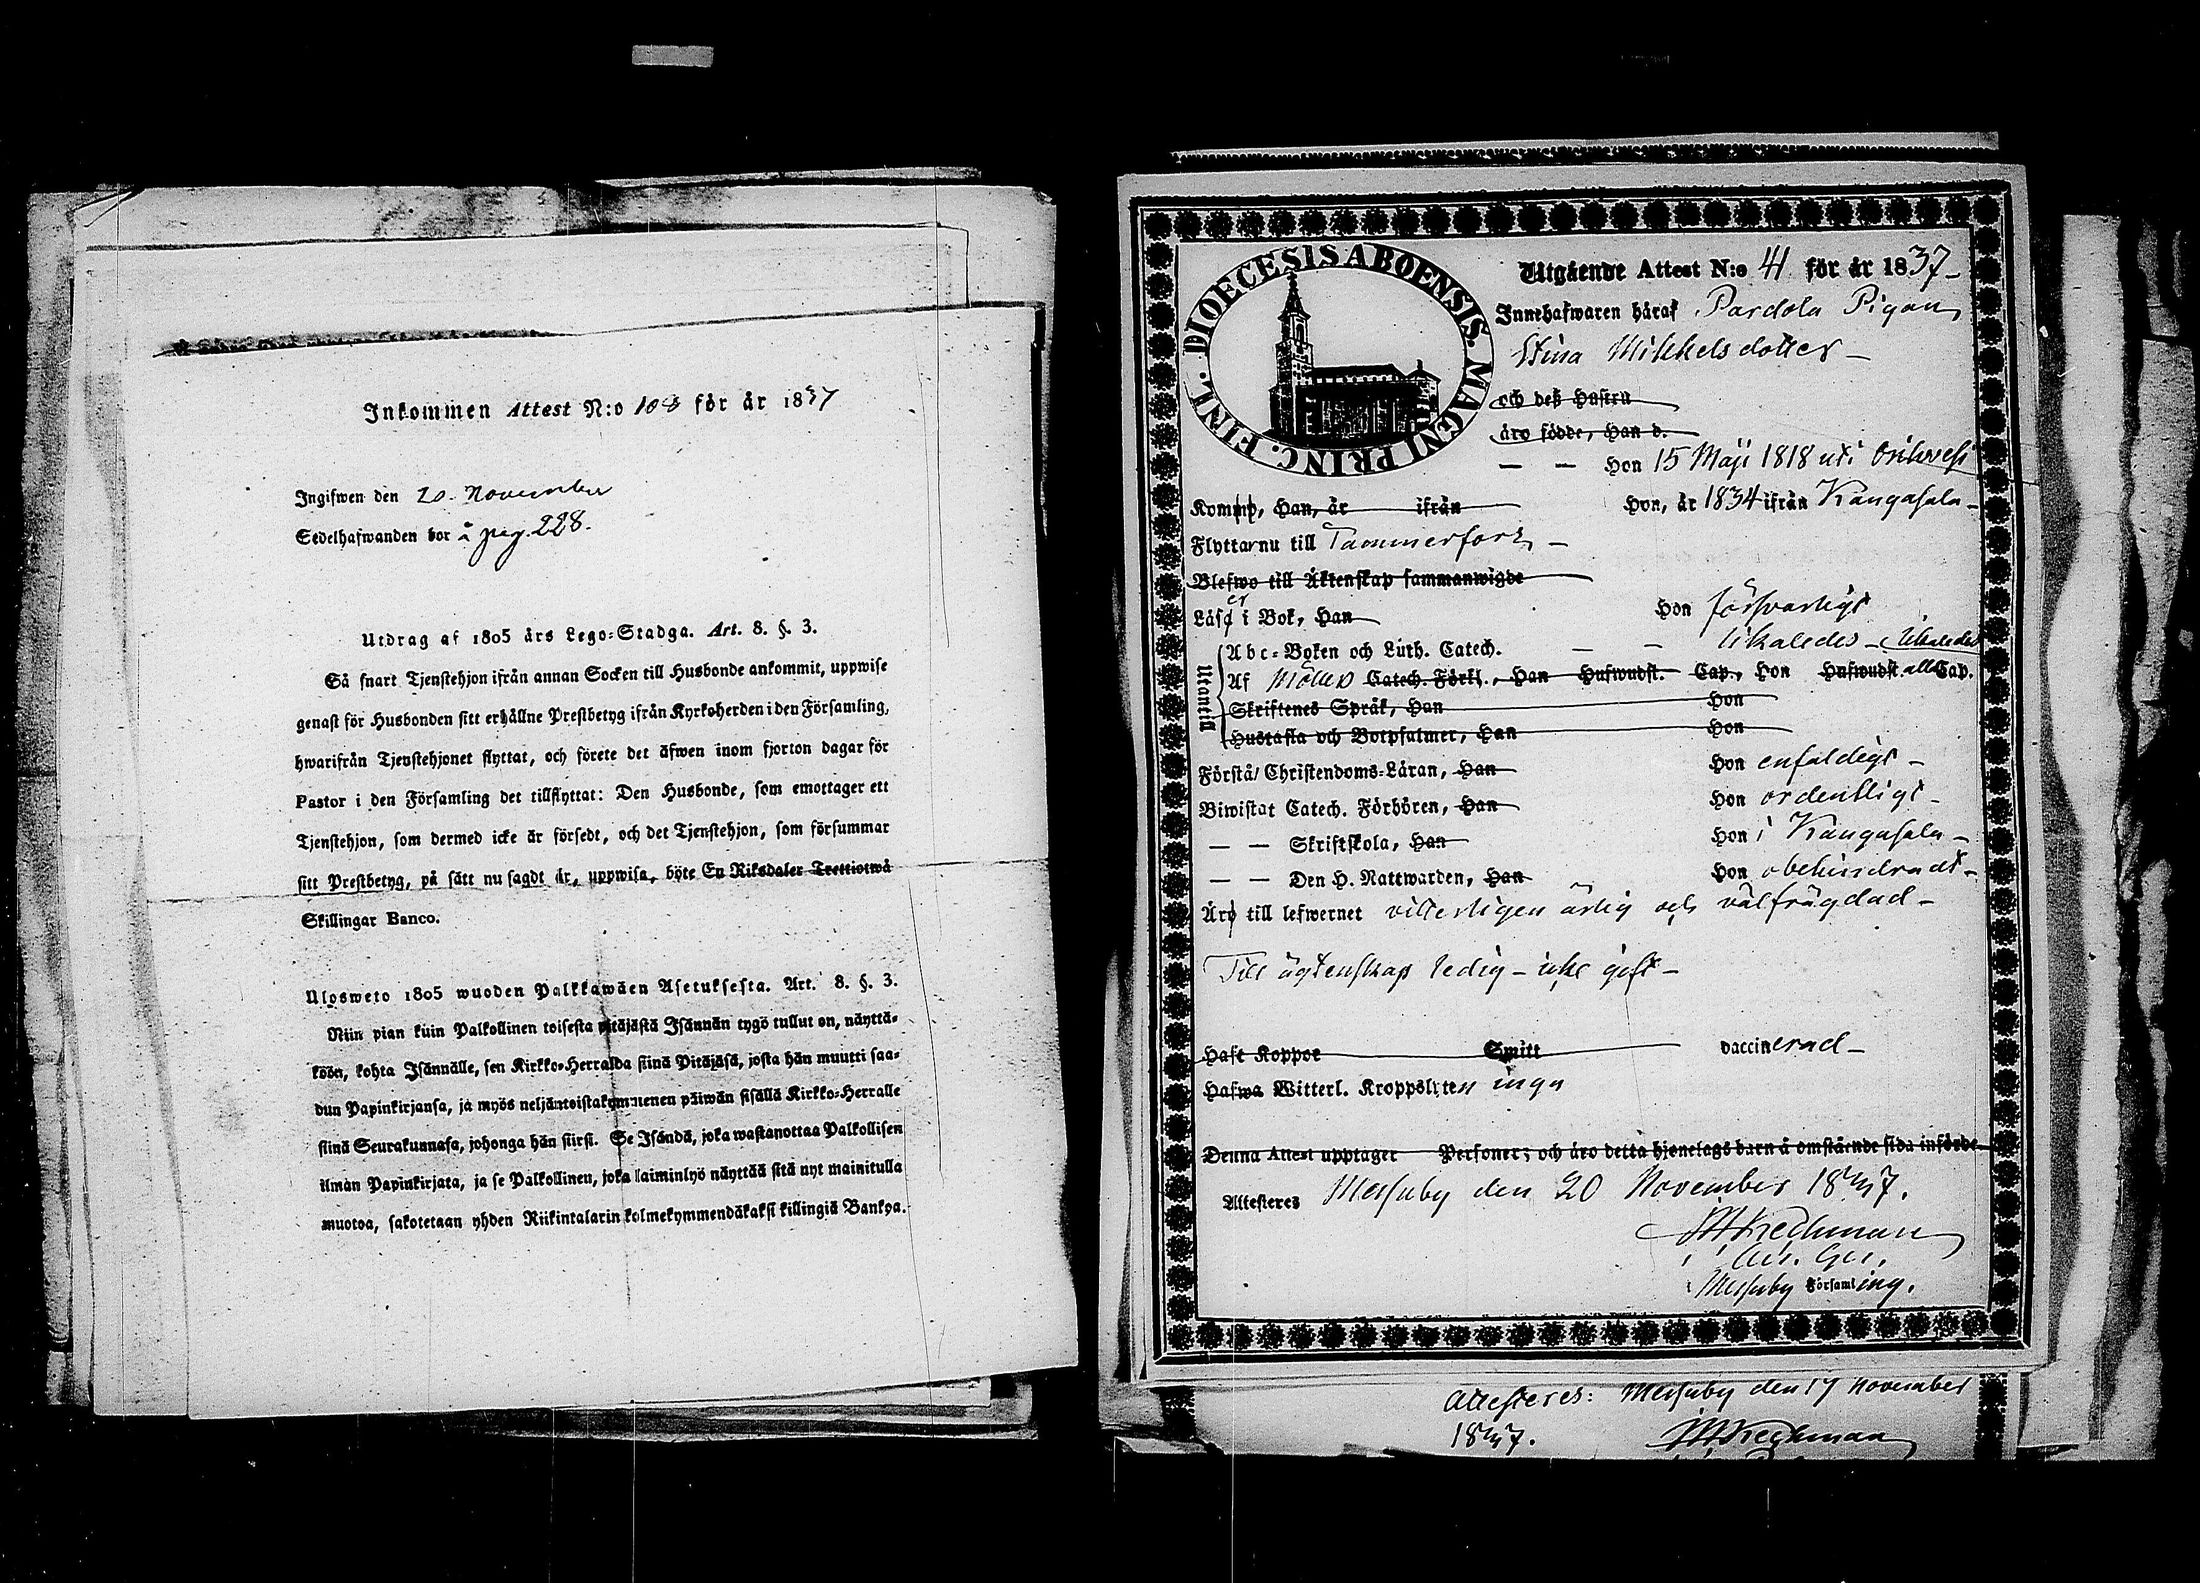 Inkommen Attest N:o 108 för år 1837
Ingifwen den 20. November
Sedelhafwanden bor å pag. 228.
Utdrag af 1805 års Lego-Stadga. Art. 8. §. 3.
Så snart Tjenstehjon ifrån annan Socken till Husbonde ankommit, uppwise
genast för Husbonden sitt erhållne Prestbetyg ifrån Kyrkoherden i den Församling,
hwarifrån Tjenstehjonet flyttat, och förete det äfwen inom fjorton dagar för
Pastor i den Församling det tillflyttat: Den Husbonde, som emottager ett
Tjenstehjon, som dermed icke är försedt, och det Tjenstehjon, som försummar
sitt Prestbetyg, på sätt nu sagdt är, uppwisa, böte En Riksdaler Trettiotwå
Skillingar Banco.
Ulosweto 1805 wuoden Palkkawäen Asetuksesta. Art. 8. §. 3.
Niin pian kuin Palkollinen toisesta pitäjästä Isännän tygö tullut on, näyttä-
köön, kohta Isännälle, sen Kirkko-Herralda siinä Pitäjäsä, josta hän muutti saa-
dun Papinkirjansa, ja myös neljäntoistakymmenen päiwän sisällä Kirkko-Herralle
siinä Seurakunnasa, johonga hän siirsi. Se Isändä, joka wastanottaa Palkollisen
ilman Papinkirjata, ja se Palkollinen, joka laiminlyö näyttää sitä nyt mainitulla
muotoa, sakotetaan yhden Riikintalarin kolmekymmendäkaksi killingiä Bankoa.
DIOECESIS ABOENSIS. MAGNI PRINC. FINL.
Utgående Attest N:o 41 för år 1837
Innehafwaren häraf Pardola Pigan
Stina Mikkelsdotter
och deß Hustru
äro födde, Han d.
— — Hon 15 Maji 1818 uti Orihvesi
Kommo, Han, år ifrån Hon, år 1834 ifrån Kangasala
Flyttar nu till Tammerfors
Blefwo till Äktenskap sammanwigde
Läser i Bok, Han Hon försvarligt
Utantill
Abc-Boken och Luth. Catech. — — likaledes likaledes
Af Möllers Catech. Förkl., Han Hufwudst. Cap., Hon Hufwudst. alla Cap.
Skriftenes Språk, Han Hon
Hustafla och Botpsalmer, Han Hon
Förstå Christendoms-Läran, Han Hon enfaldigt
Biwistat Catech. Förhören, Han Hon ordentligt
— — Skriftskola, Han Hon i Kangasala
— — Den H. Nattwarden, Han Hon obehindradt
Äro till lefwernet vitterligen ärlig och välfrägdad
Till ägtenskap ledig – icke gift
Haft Koppor Smitt vaccinerad
Hafwa Witterl. Kroppslyten inga
Denna Attest upptager Personer; och äro detta hjonelags barn å omstående sida införde
Attesteres Messuby den 20 November 1837.
Messuby Församling.
Attesteres: Messuby den 17 November
1837.